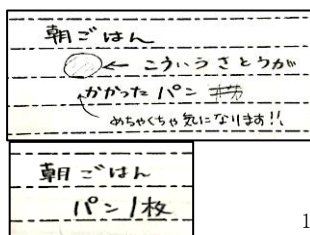 朝ごはん
← こういうさとうが
かかった パン
めちゃくちゃ気になります!!
朝ごはん
パン1枚
1